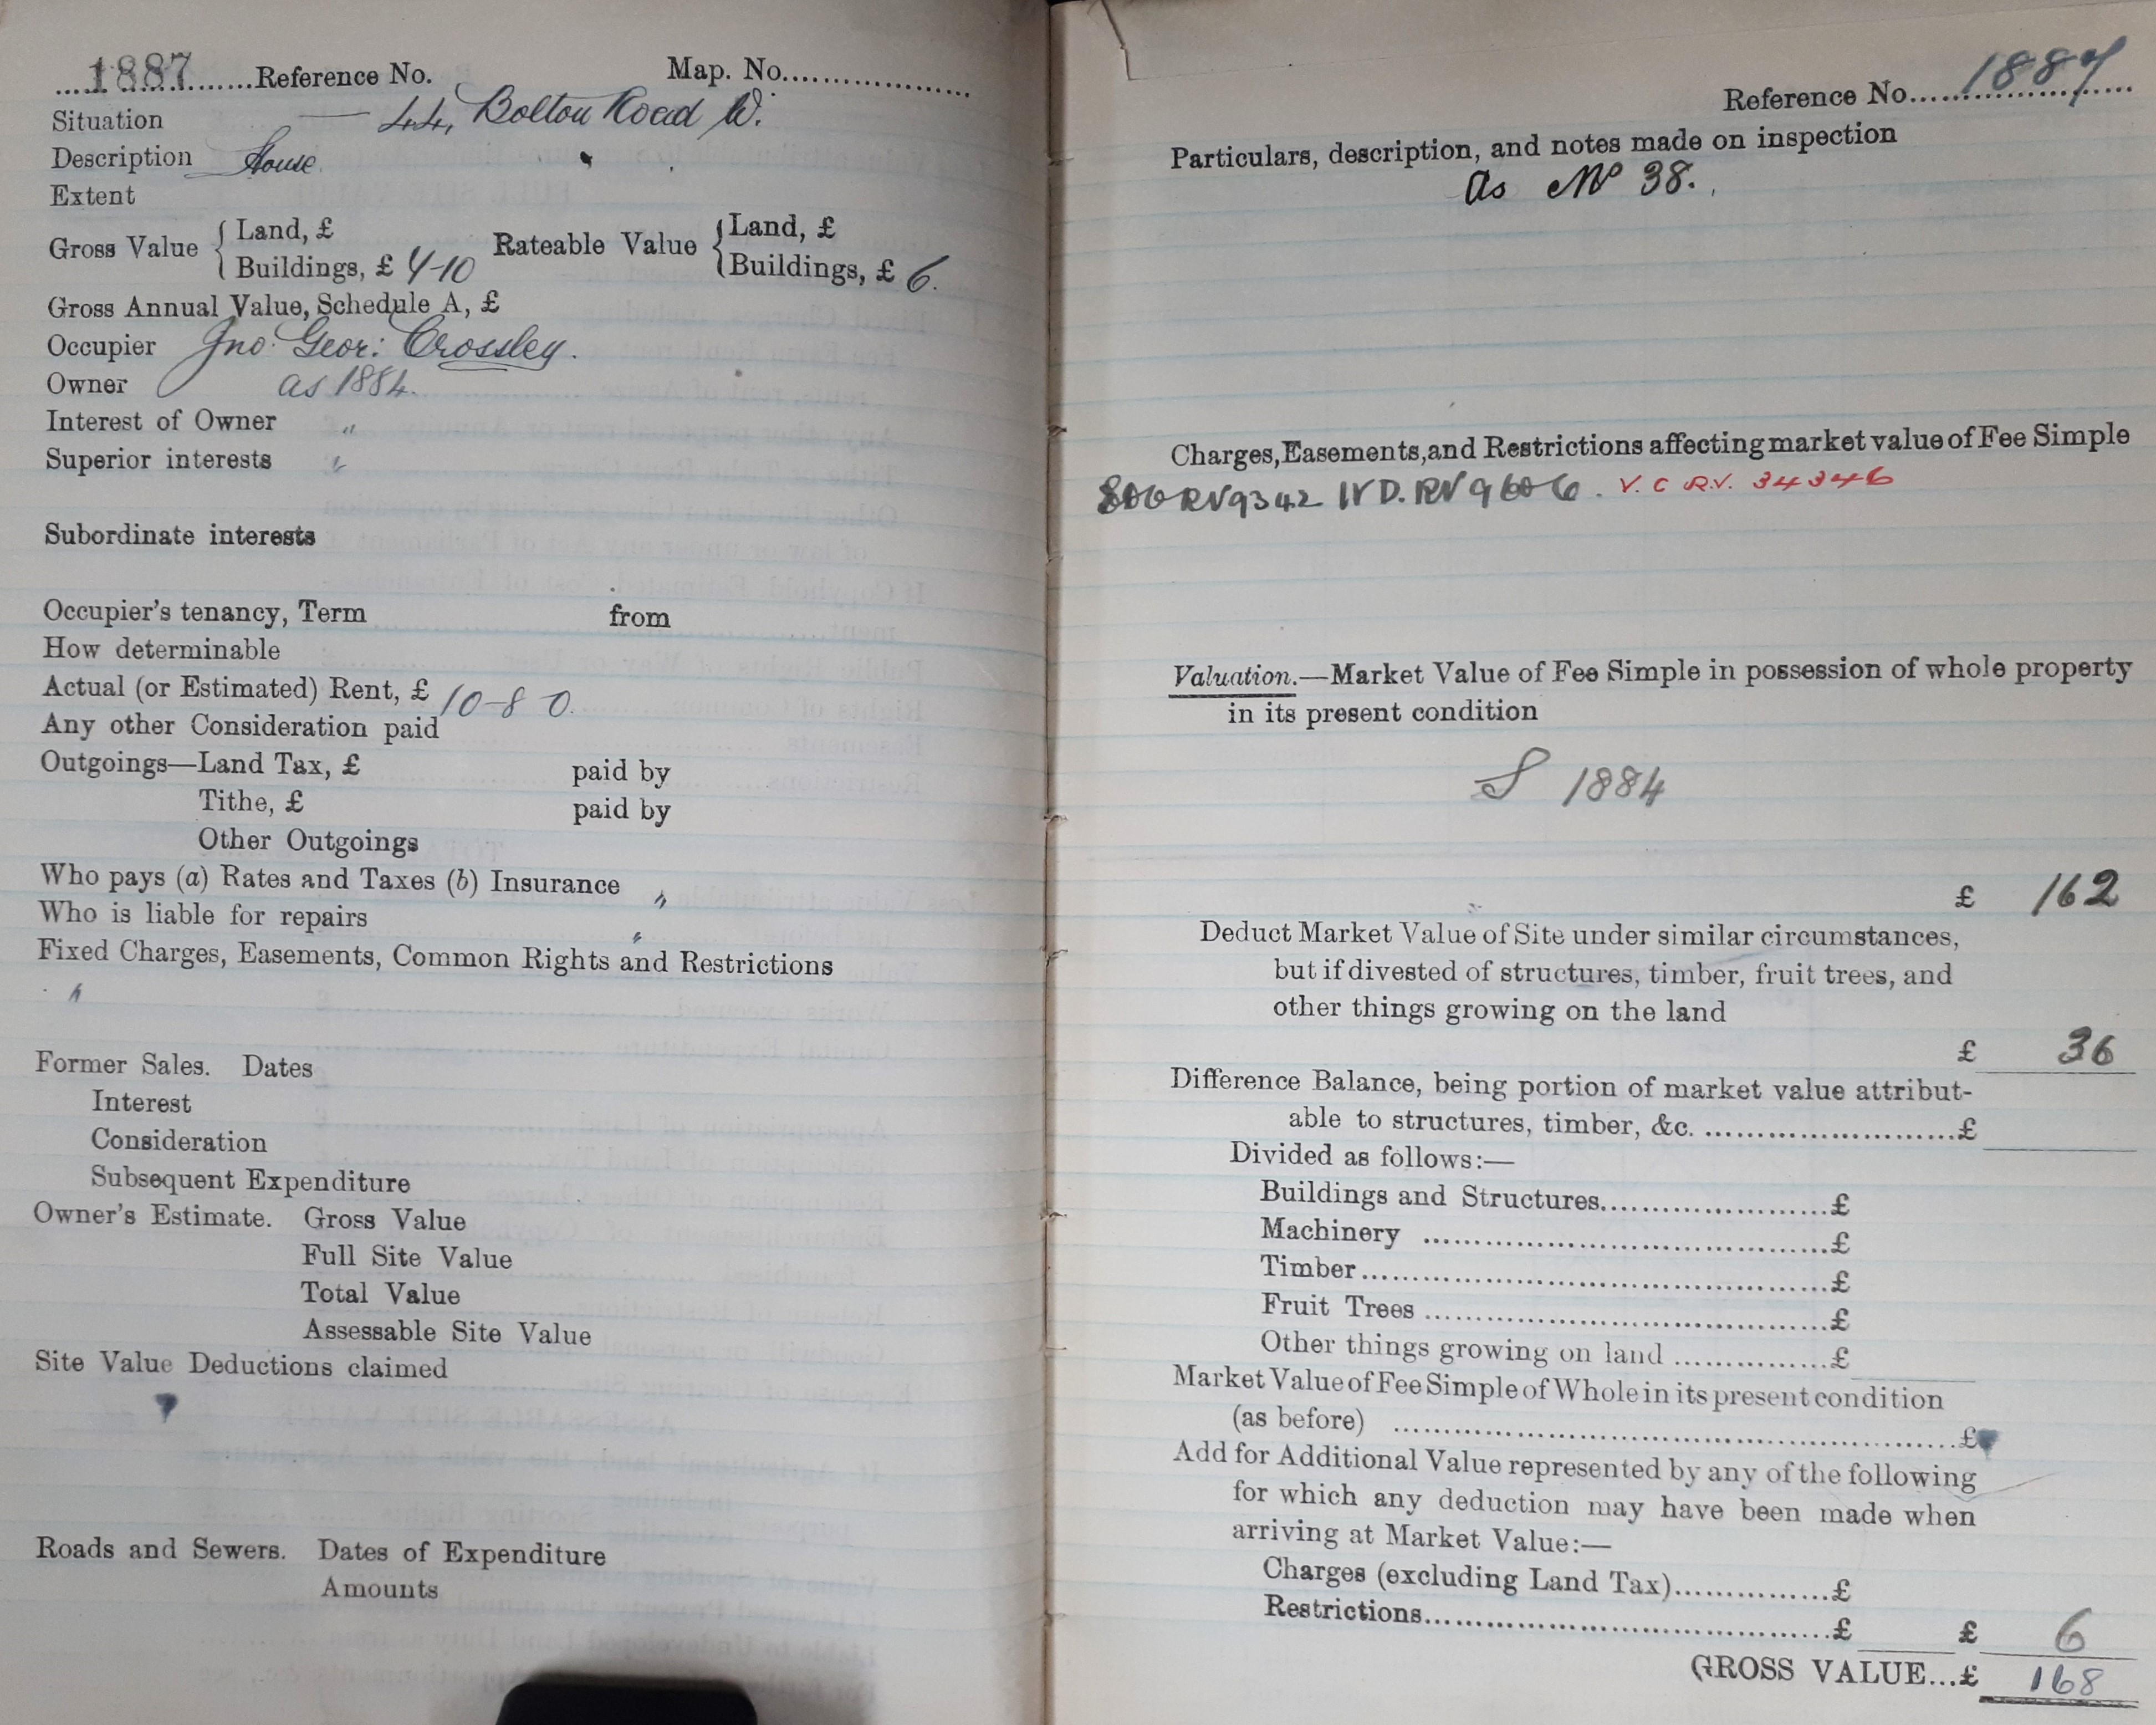 1887 Reference No. Map. No.
Situation — 44, Bolton Road W.
Description House.
Extent
Gross Value { Land, £ Rateable Value { Land, £
Buildings, £ 4-10 Buildings, £ 6.
Gross Annual Value, Schedule A, £
Occupier Jno. Geor: Crossley.
Owner as 1884.
Interest of Owner "
Superior interests "
Subordinate interests
Occupier's tenancy, Term from
How determinable
Actual (or Estimated) Rent, £ 10-8 0.
Any other Consideration paid
Outgoings—Land Tax, £ paid by
Tithe, £ paid by
Other Outgoings
Who pays (a) Rates and Taxes (b) Insurance "
Who is liable for repairs "
Fixed Charges, Easements, Common Rights and Restrictions
"
Former Sales. Dates
Interest
Consideration
Subsequent Expenditure
Owner's Estimate. Gross Value
Full Site Value
Total Value
Assessable Site Value
Site Value Deductions claimed
Roads and Sewers. Dates of Expenditure
Amounts
Reference No. 1887
Particulars, description, and notes made on inspection
as No 38.
Charges, Easements, and Restrictions affecting market value of Fee Simple
RV 9342 IVD. RV 9606. V. C R.V. 34346
Valuation.—Market Value of Fee Simple in possession of whole property
in its present condition
S 1884
£ 162
Deduct Market Value of Site under similar circumstances,
but if divested of structures, timber, fruit trees, and
other things growing on the land
£ 36
Difference Balance, being portion of market value attribut-
able to structures, timber, &c. £
Divided as follows:—
Buildings and Structures £
Machinery £
Timber £
Fruit Trees £
Other things growing on land £
Market Value of Fee Simple of Whole in its present condition
(as before) £
Add for Additional Value represented by any of the following
for which any deduction may have been made when
arriving at Market Value:—
Charges (excluding Land Tax) £
Restrictions £ £ 6
GROSS VALUE...£ 168